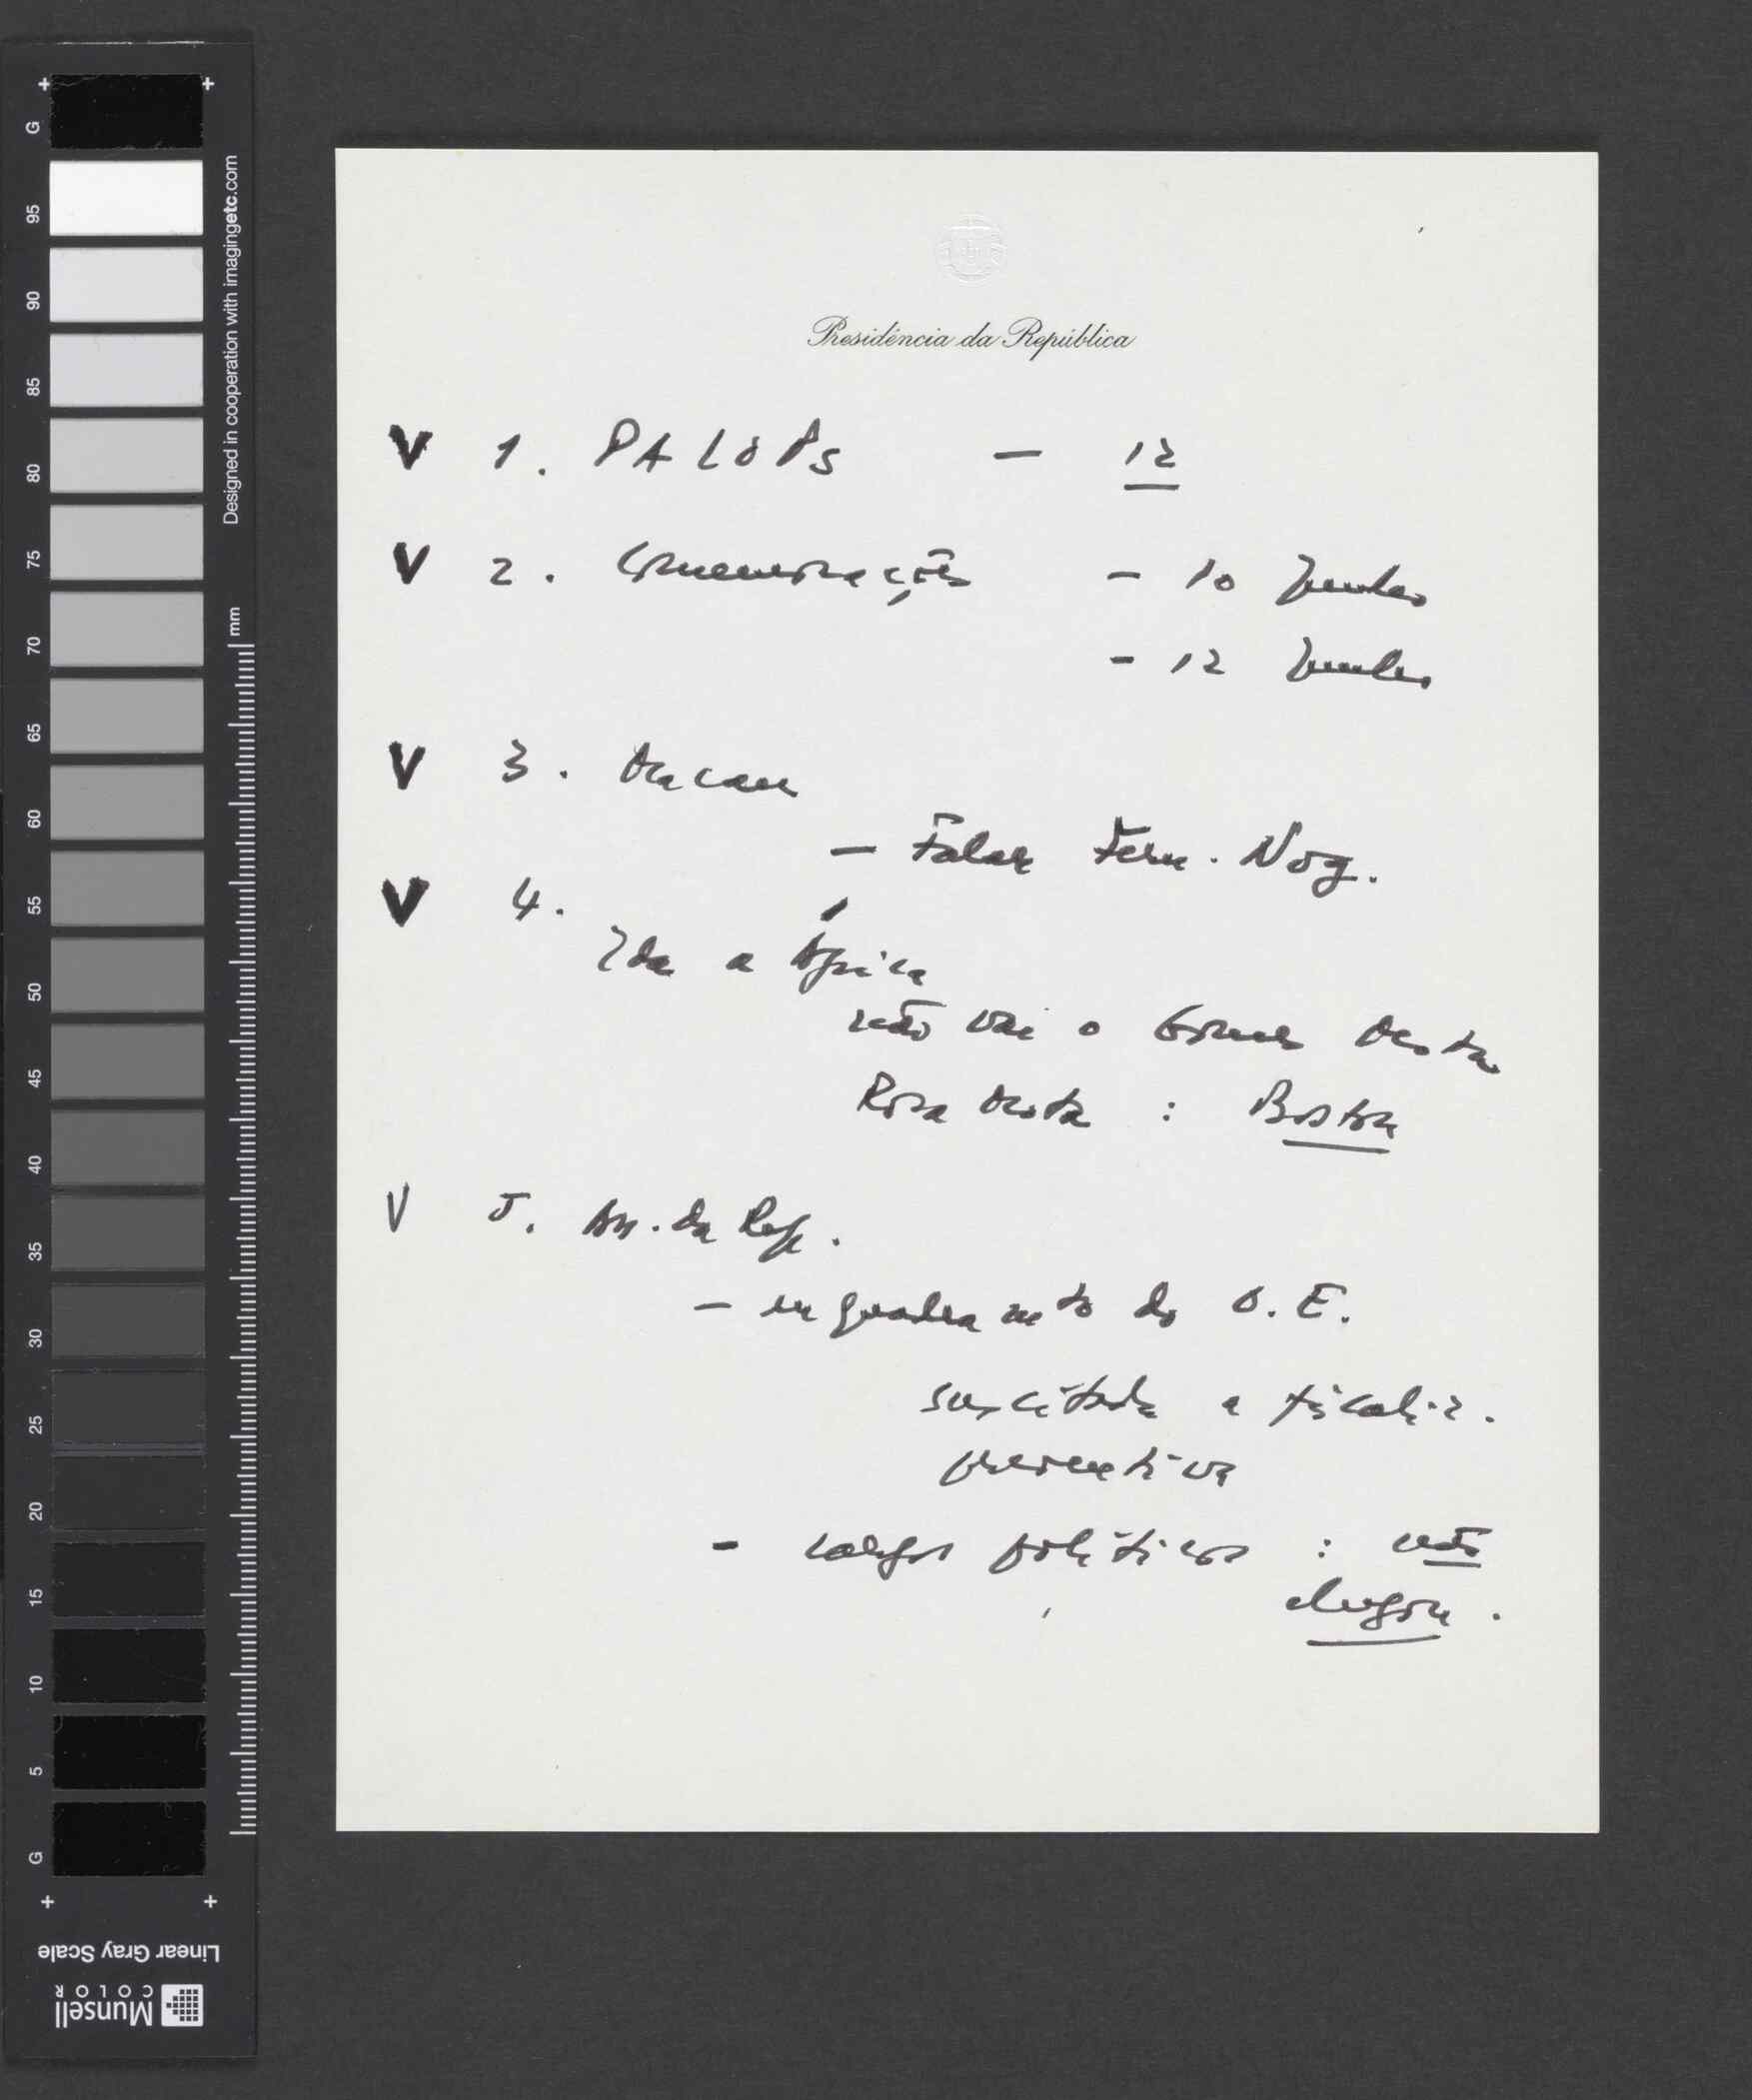 Presidência da República
V 1. PALOPs — 12
V 2. Comemorações - 10 Junho
- 12 Junho
V 3. Macau
— Falar Fern. Nog.
V 4.
Ida a África
não vai o Gomes Mota
Rosa Mota : Boston
V 5. Ass. da Rep.
— enquadramento do O.E.
suscitada a fiscaliz.
preventiva
- cargos políticos : não
alegou.
G 95 90 85 80 75 70 65 60 55 50 45 40 35 30 25 20 15 10 5 G
Designed in cooperation with imagingetc.com
mm
Linear Gray Scale
Munsell
COLOR